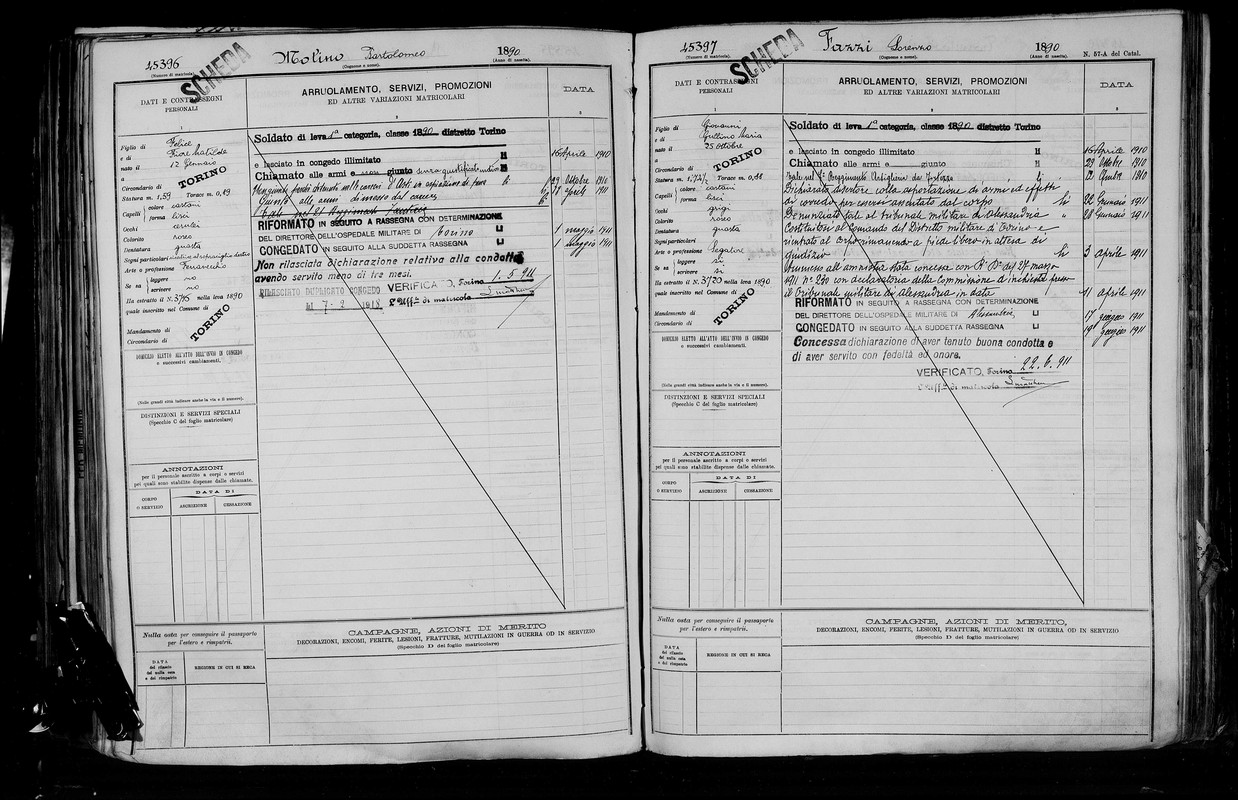 45396
SCHEDA
Molino Bartolomeo
1890
(Numero di matricola).
(Cognome e nome).
(Anno di nascita).
DATI E CONTRASSEGNI
PERSONALI
ARRUOLAMENTO, SERVIZI, PROMOZIONI
ED ALTRE VARIAZIONI MATRICOLARI
DATA
1
2
3
Figlio di Felice
e di Fiore Matilde
nato il 12 Gennaio
a TORINO
Circondario di
Statura m. 1,59 Torace m. 0,89
Capelli colore castani
forma lisci
Occhi cerulei
Colorito roseo
Dentatura guasta
Segni particolari
Arte o professione Ferravecchio
Se sa leggere no
scrivere no
Ha estratto il N. 3795 nella leva 1890
quale inscritto nel Comune di
TORINO
Mandamento di
Circondario di
DOMICILIO ELETTO ALL'ATTO DELL'INVIO IN CONGEDO
o successivi cambiamenti.
(Nelle grandi città indicare anche la via e il numero).
DISTINZIONI E SERVIZI SPECIALI
(Specchio C del foglio matricolare)
ANNOTAZIONI
per il personale ascritto a corpi o servizi
pei quali sono stabilite dispense dalle chiamate.
CORPO
O SERVIZIO
DATA DI
ASCRIZIONE
CESSAZIONE
Soldato di leva 1ª categoria, classe 1890 distretto Torino
e lasciato in congedo illimitato
16 Aprile 1910
Chiamato alle armi e non giunto senza giustificato motivo
29 Ottobre 1910
Giunto alle armi dimesso dal carcere
Aprile 1911
RIFORMATO IN SEGUITO A RASSEGNA CON DETERMINAZIONE
DEL DIRETTORE DELL'OSPEDALE MILITARE DI Torino
1 maggio 1911
CONGEDATO IN SEGUITO ALLA SUDDETTA RASSEGNA
1 Maggio 1911
Non rilasciata dichiarazione relativa alla condotta
avendo servito meno di tre mesi.
RILASCIATO DUPLICATO CONGEDO
VERIFICATO, Torino 1.5.911
L'Uff.le di matricola
Nulla osta per conseguire il passaporto
per l'estero e rimpatrii.
DATA
del rilascio
del nulla osta
e del rimpatrio
REGIONE IN CUI SI RECA
CAMPAGNE, AZIONI DI MERITO
DECORAZIONI, ENCOMI, FERITE, LESIONI, FRATTURE, MUTILAZIONI IN GUERRA OD IN SERVIZIO
(Specchio D del foglio matricolare)
45397
SCHEDA
Fazzi Lorenzo
1890
N. 57-A del Catal.
(Numero di matricola).
(Cognome e nome).
(Anno di nascita).
DATI E CONTRASSEGNI
PERSONALI
ARRUOLAMENTO, SERVIZI, PROMOZIONI
ED ALTRE VARIAZIONI MATRICOLARI
DATA
1
2
3
Figlio di Giovanni
e di Gullino Maria
nato il 25 Ottobre
a TORINO
Circondario di
Statura m. 1,72½ Torace m. 0,88
Capelli colore castani
forma lisci
Occhi grigi
Colorito roseo
Dentatura guasta
Segni particolari
Arte o professione Segatore
Se sa leggere si
scrivere si
Ha estratto il N. 3720 nella leva 1890
quale inscritto nel Comune di
TORINO
Mandamento di
Circondario di
DOMICILIO ELETTO ALL'ATTO DELL'INVIO IN CONGEDO
o successivi cambiamenti.
(Nelle grandi città indicare anche la via e il numero).
DISTINZIONI E SERVIZI SPECIALI
(Specchio C del foglio matricolare)
ANNOTAZIONI
per il personale ascritto a corpi o servizi
pei quali sono stabilite dispense dalle chiamate.
CORPO
O SERVIZIO
DATA DI
ASCRIZIONE
CESSAZIONE
Soldato di leva 1ª categoria, classe 1890 distretto Torino
e lasciato in congedo illimitato
16 Aprile 1910
Chiamato alle armi e giunto
29 Ottobre 1910
Tale nel Reggimento Artiglieria da Fortezza
1910
Dichiarato disertore colla asportazione di armi ed effetti
di corredo per essersi assentato dal corpo
22 Gennaio 1911
Denunziato tale al Tribunale militare di Alessandria
28 Gennaio 1911
Costituitosi al Comando del Distretto militare di Torino e
rientrato al corpo rimanendo a piede libero in attesa di
giudizio
3 aprile 1911
Ammesso all'amnistia stata concessa con R° D° del 27 marzo
1911 n° 230 con declaratoria della commissione d'inchiesta presso
il Tribunale militare di Alessandria in data
11 aprile 1911
RIFORMATO IN SEGUITO A RASSEGNA CON DETERMINAZIONE
DEL DIRETTORE DELL'OSPEDALE MILITARE DI Alessandria
17 giugno 1911
CONGEDATO IN SEGUITO ALLA SUDDETTA RASSEGNA
19 giugno 1911
Concessa dichiarazione di aver tenuto buona condotta e
di aver servito con fedeltà ed onore.
VERIFICATO, Torino 22.6.911
L'Uff.le di matricola
Nulla osta per conseguire il passaporto
per l'estero e rimpatrii.
DATA
del rilascio
del nulla osta
e del rimpatrio
REGIONE IN CUI SI RECA
CAMPAGNE, AZIONI DI MERITO,
DECORAZIONI, ENCOMI, FERITE, LESIONI, FRATTURE, MUTILAZIONI IN GUERRA OD IN SERVIZIO
(Specchio D del foglio matricolare)